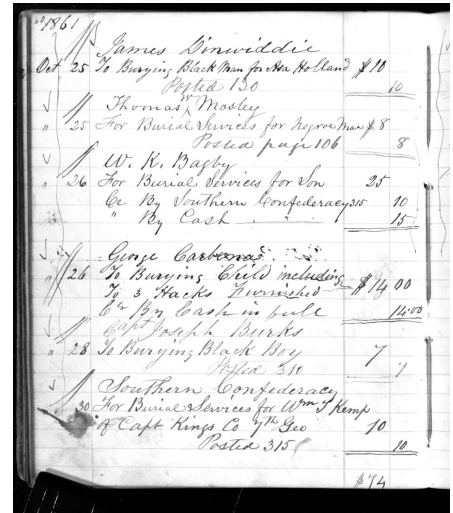 1861
James Dinwiddie
Oct 25 To Burying Black Man for Asa Holland $10
Posted 130 10
Thomas W Mosley
" 25 For Burial Services for Negroe Man $8
Posted page 106 8
W. K. Bagby
" 26 For Burial Services for Son 25
Cr By Southern Confederacy 315 10
" By Cash 15
George
" 26 To Burying Child including
To 3 Hacks Furnished $14 00
Cr By Cash in full 14.00
Capt Joseph Burks
" 28 To Burying Black Boy 7
Posted 310 7
Southern Confederacy
30 For Burial Services for Wm T Kemp
of Capt Kings Co 7th Geo 10
Posted 315 10
$74